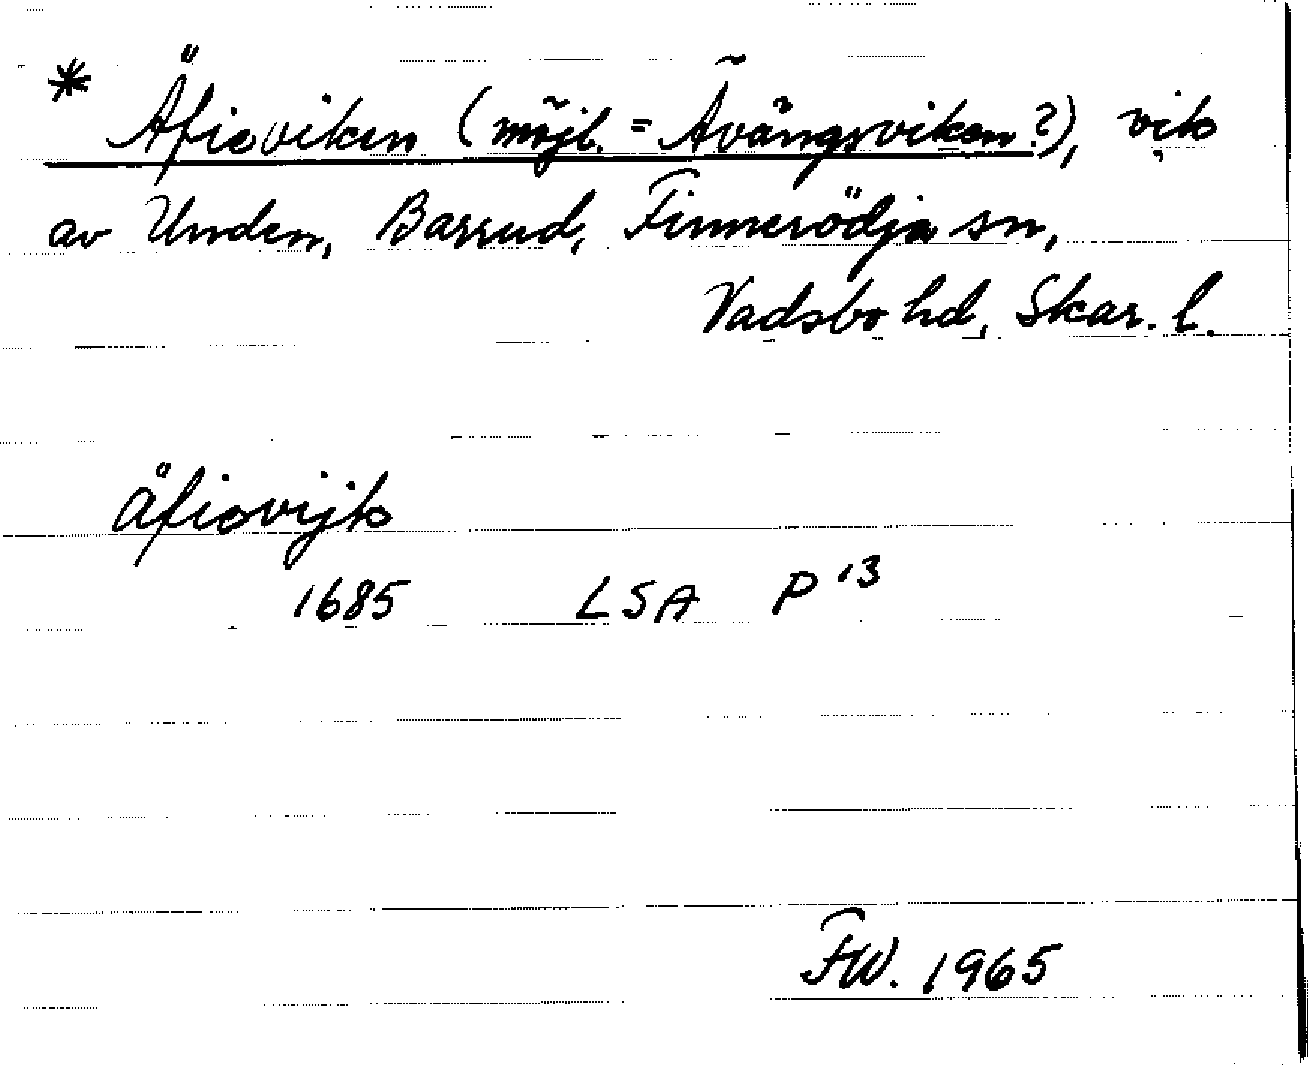 * Äfioviken (möjl. = Ävängsviken?), vik
av Unden, Barrud, Finnerödja sn,
Vadsbo hd, Skar. l.
äfiovijk
1685 LSA P 13
FW. 1965